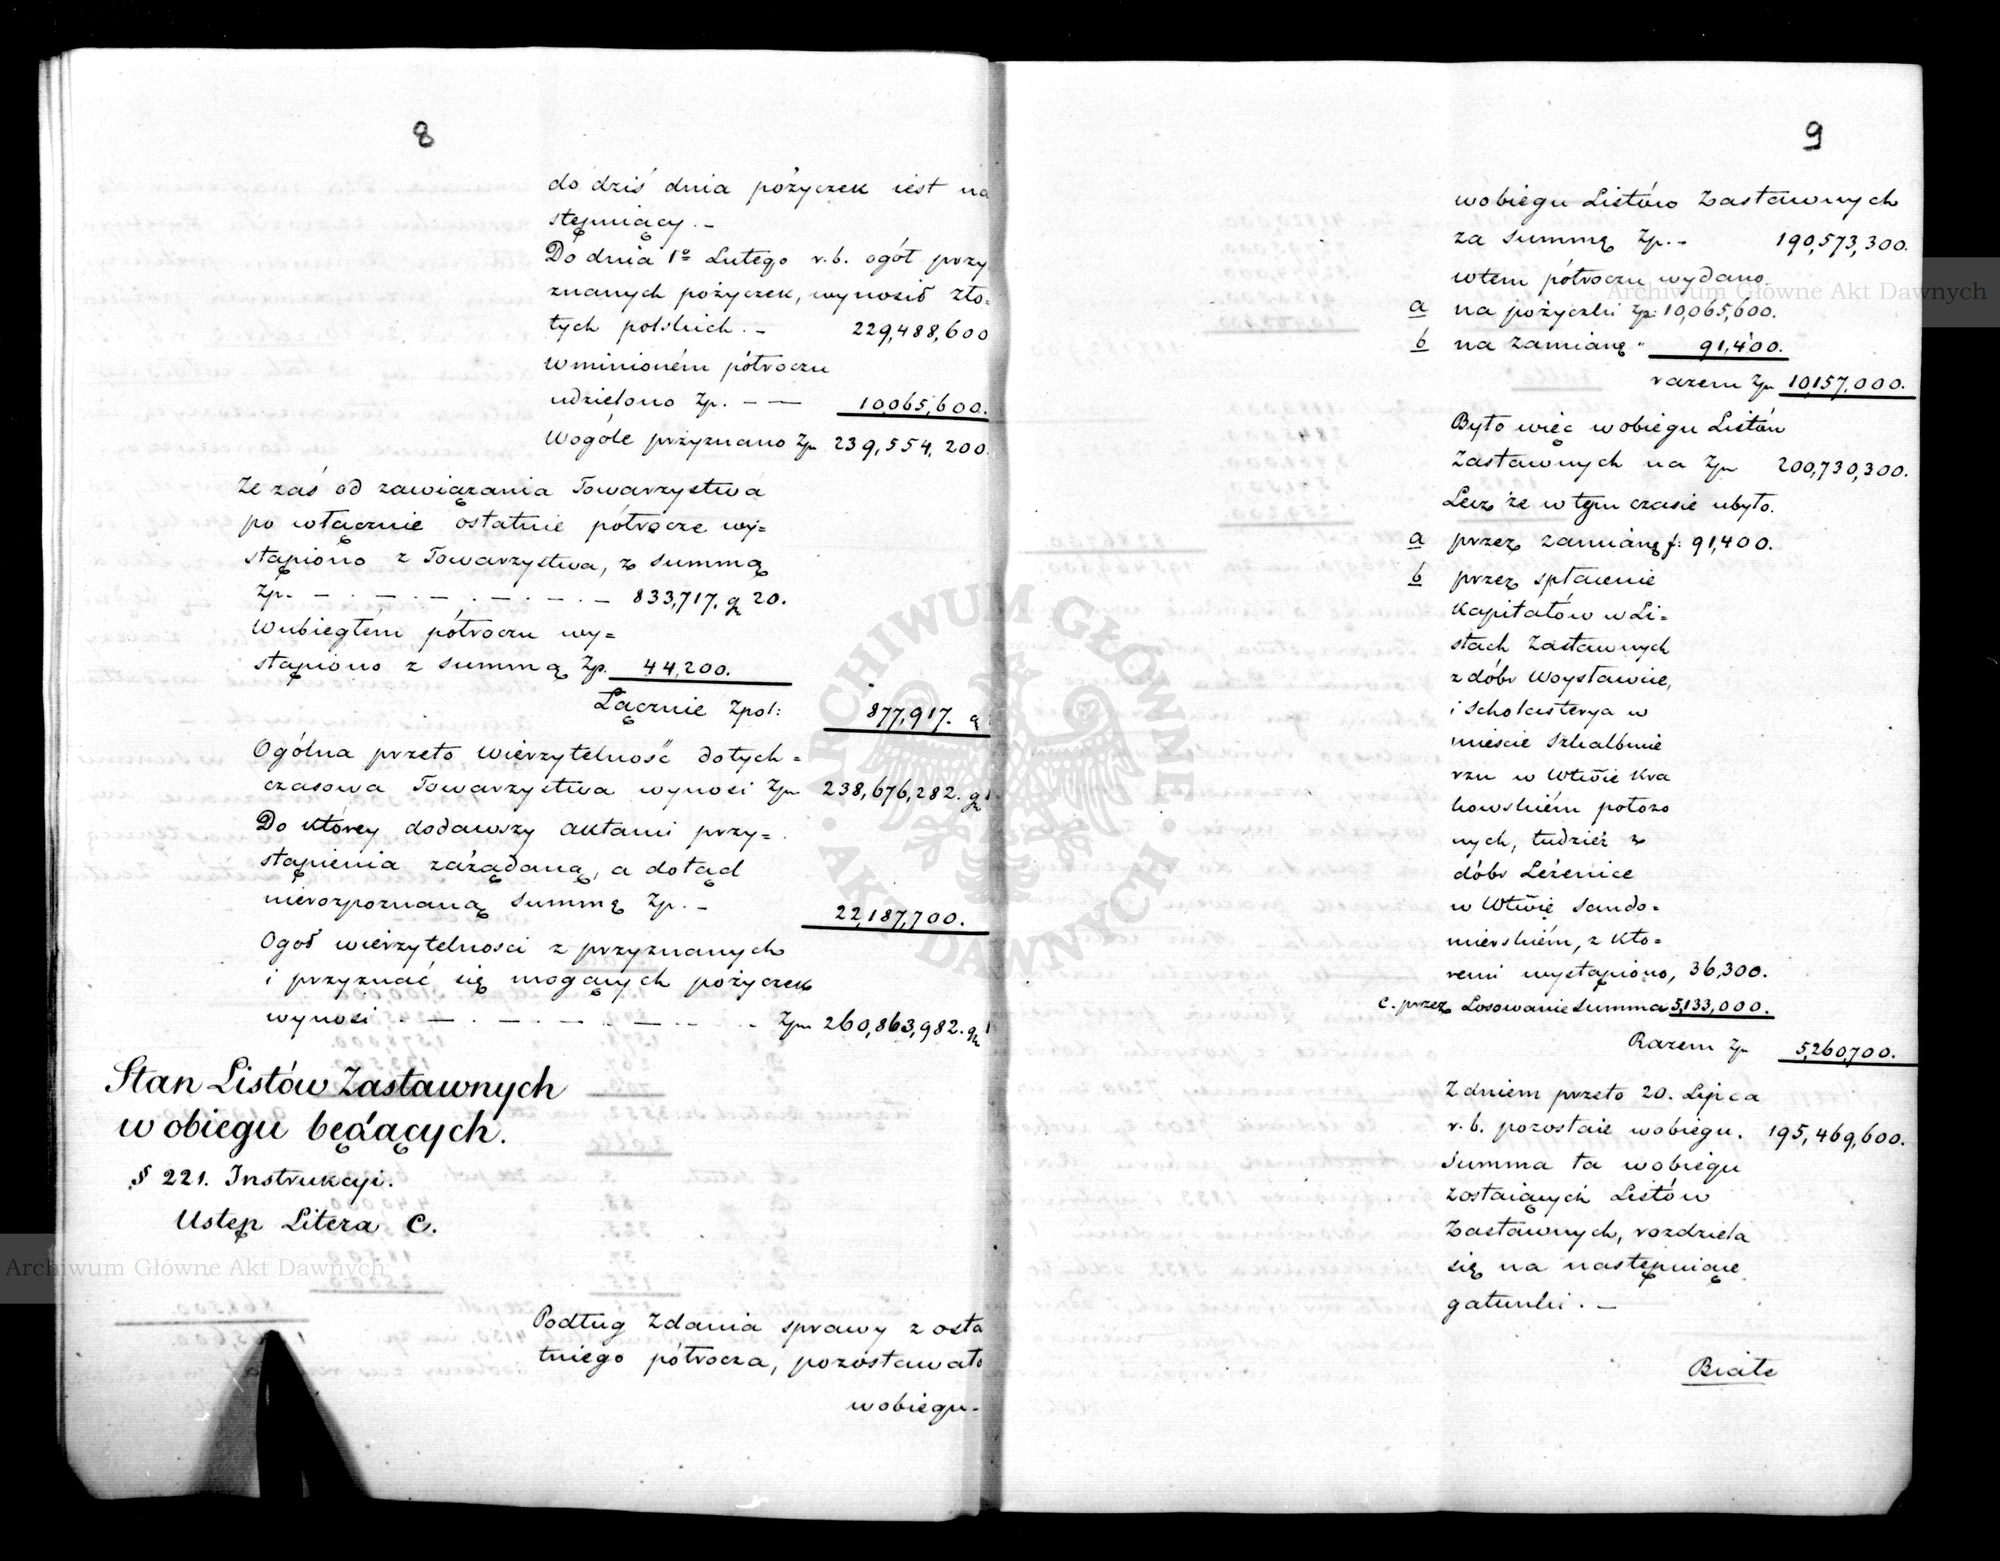 8
do dziś dnia pożyczek iest na
stępuiący. –
Do dnia 1o Lutego r.b. ogół przy
znanych pożyczek, wynosił zło-
tych polskich. – 229,488,600
W minioném półroczu
udzielono Zp. – — 10,065,600.
Wogóle przyznano Zp 239,554,200.
Ze zaś od zawiązania Towarzystwa
po włącznie ostatnie półrocze wy=
stąpiono z Towarzystwa, z summą
Zp. – . – . – . – . – . – 833,717. g 20.
W ubiegłem półroczu wy=
stąpiono z summą Zp. 44,200.
Łącznie Zpol: 877,917. g
Ogólna przeto wierzytelność dotych=
czasowa Towarzystwa wynosi Zp 238,676,282. g 1
Do którey dodawszy aktami przy=
stąpienia zażądaną, a dotąd
nierozpoznaną summę Zp. – 22,187,700.
Ogół wierzytelnosci z przyznanych
i przyznać się mogących pożyczek
wynosi . – . – . – . – . – . Zp 260,863,982. g 1
Stan Listów Zastawnych
w obiegu będących.
§ 221. Instrukcyi.
Ustęp Litera C.
Podług Zdania sprawy z osta
tniego półrocza, pozostawało
w obiegu-
9
w obiegu Listów Zastawnych
za summę Zp. – 190,573,300.
w tem półroczu wydano.
a na pożyczki Zp: 10,065,600.
b na zamianę " 91,400.
razem Zp 10,157,000.
Było więc w obiegu Listów
Zastawnych na Zp 200,730,300.
Lecz że w tym czasie ubyło.
a przez zamianę f: 91,400.
b przez spłacenie
Kapitałów w Li=
stach Zastawnych
z dóbr Woysławice,
i Scholasterya w
mieście Szkalbmie
rzu w Wtwie Kra
kowskiém położo
nych, tudzież z
dóbr Leżenice
w Wtwie Sando=
mierskiém, z któ=
remi wystąpiono, 36,300.
c. przez Losowanie summa 5,133,000.
Razem Zp 5,260,700.
Z dniem przeto 20. Lipca
r.b. pozostaie w obiegu. 195,469,600.
Summa ta w obiegu
zostaiących Listów
Zastawnych, rozdziela
się na następuiące
gatunki. –
Białe
Archiwum Główne Akt Dawnych
Archiwum Główne Akt Dawnych
ARCHIWUM GŁÓWNE • AKT DAWNYCH •